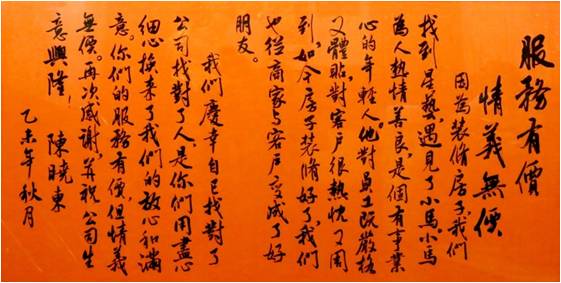 服務有價
情義無價
因為裝修房子我們
找到星藝,遇見了小馬。小馬
為人熱情善良,是個有事業
心的年輕人。他對員工既嚴格
又體貼,對客戶很熱忱又周
到,如今房子裝修好了,我們
也從商家与客戶变成了好
朋友。
我們慶幸自己找對了
公司找對了人,是你們用盡心
细心换来了我們的放心和滿
意。你們的服務有價,但情義
無價。再次感谢,并祝公司生
意興隆!
陳曉東
乙未年秋月